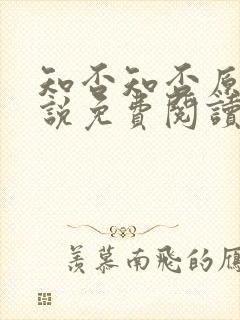 知否知否原
說免費閱讀
羨慕南飛的雁